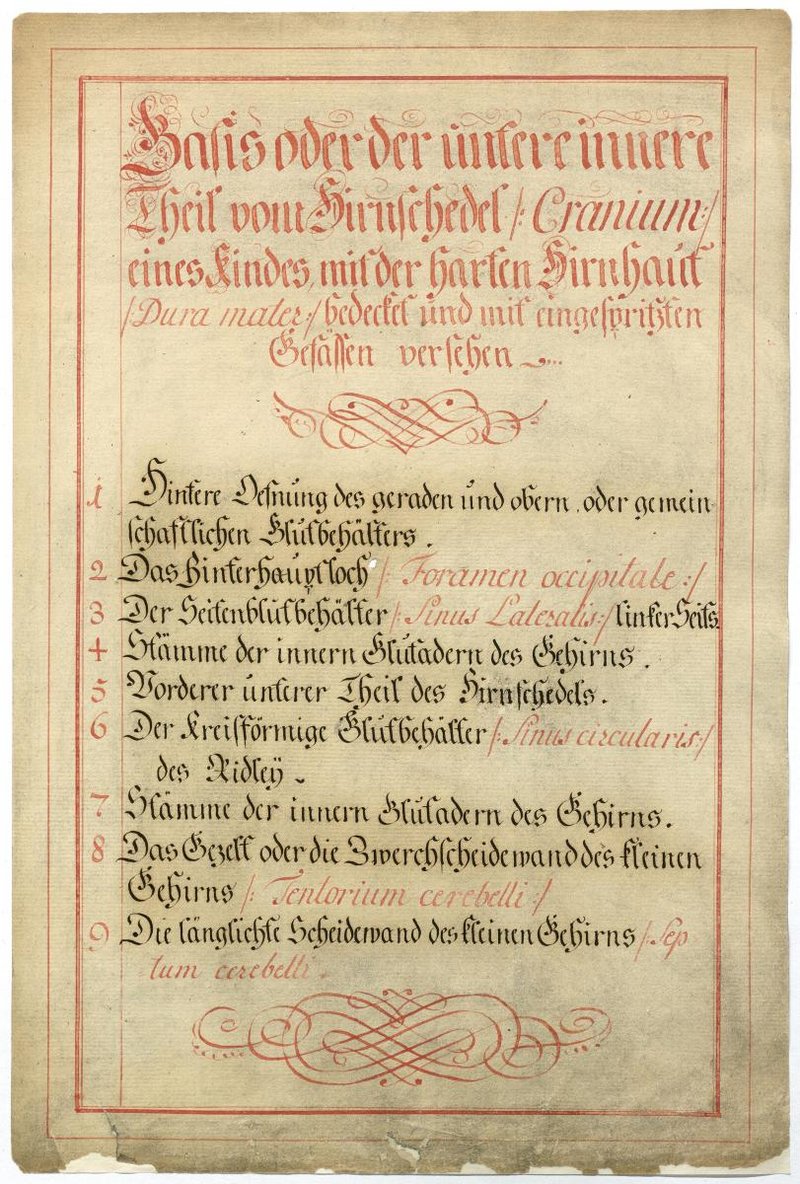 Basis oder der untere innere
Theil vom Hirnschedel /: Cranium :/
eines Kindes, mit der harten Hirnhaut
/: Dura mater :/ bedecket und mit eingespritzten
Gefässen versehen
1 Hintere Oefnung des geraden und obern, oder gemein
schaftlichen Blutbehälters.
2 Das Hinterhauptloch /: Foramen occipitale :/
3 Der Seitenblutbehälter /: Sinus Lateralis :/ linker Seits
4 Stämme der innern Blutadern des Gehirns.
5 Vorderer unterer Theil des Hirnschedels.
6 Der Kreisförmige Blutbehälter /: Sinus circularis :/
des Ridley.
7 Stämme der innern Blutadern des Gehirns.
8 Das Gezelt oder die Zwerchscheidewand des kleinen
Gehirns /: Tentorium cerebelli :/
9 Die länglichte Scheidewand des kleinen Gehirns /: Sep
tum cerebelli.